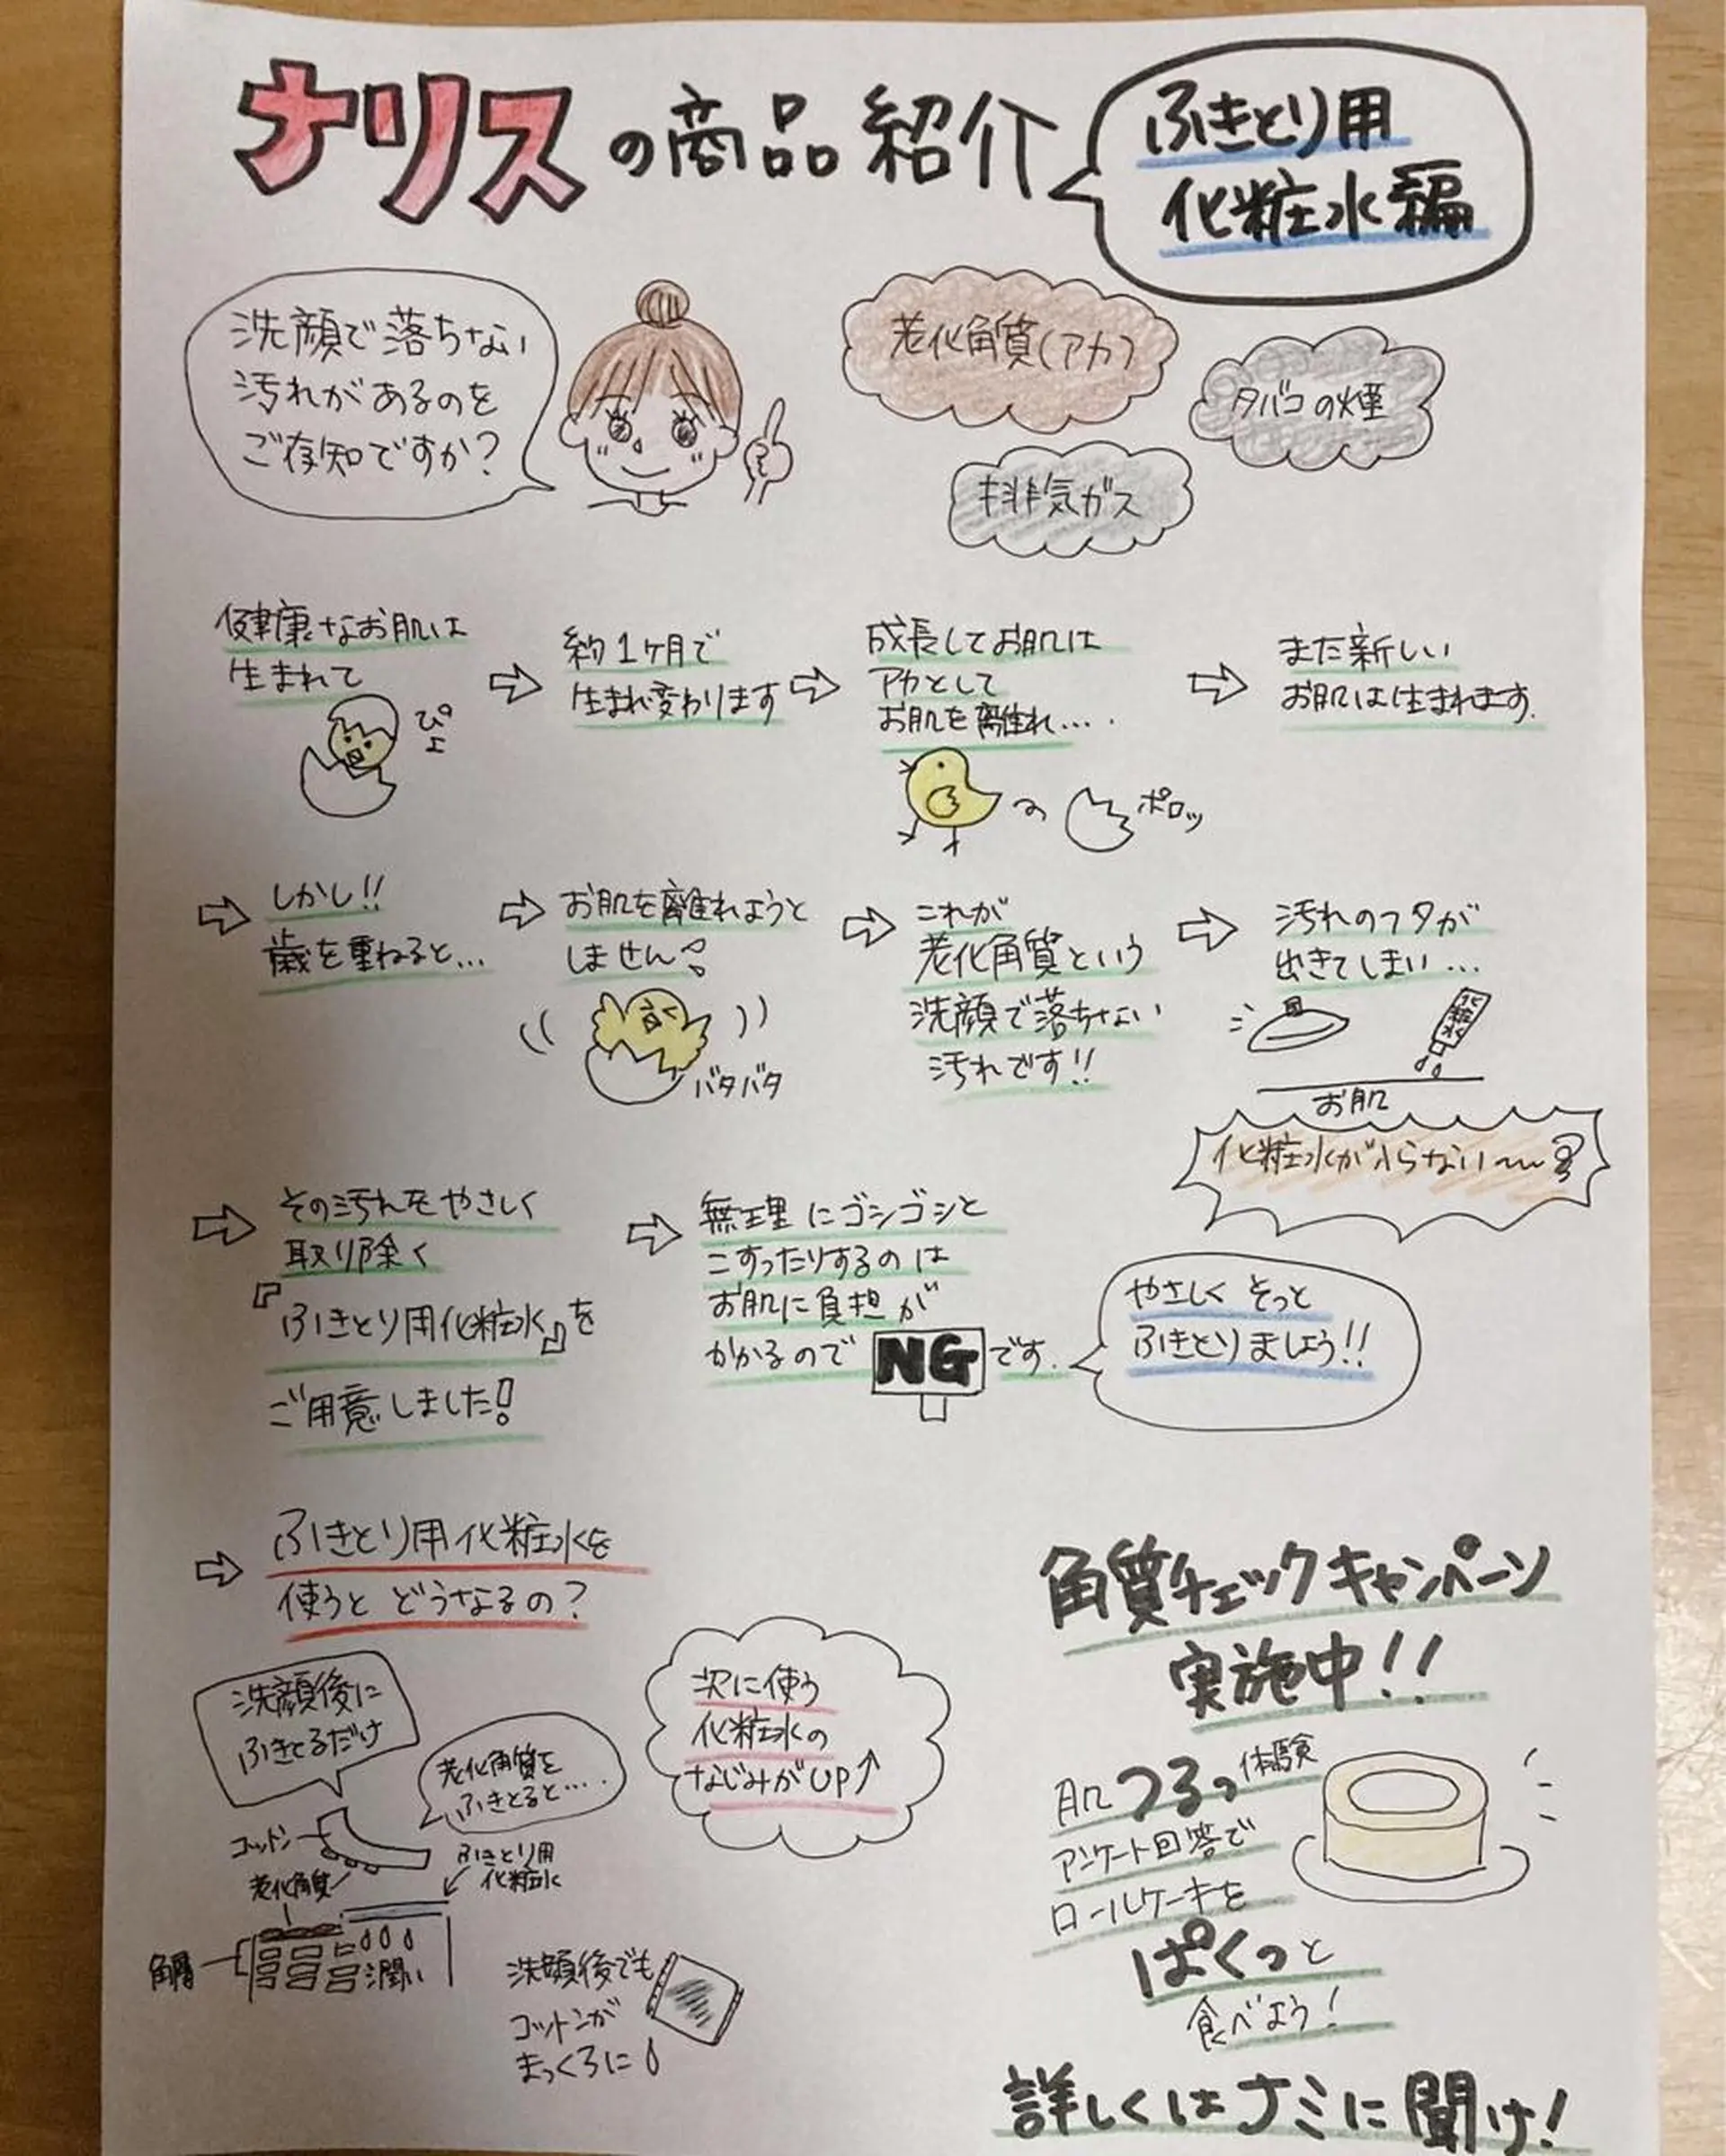 ナリスの商品紹介
ふきとり用
化粧水編
洗顔で落ちない
汚れがあるのを
ご存知ですか?
老化角質(アカ)
タバコの煙
排気ガス
健康なお肌は
生まれて
ぴよ
⇨ 約1ヶ月で
生まれ変わります
⇨ 成長してお肌は
アカとして
お肌を離れ.....
ポロッ
⇨ また新しい
お肌は生まれます.
⇨ しかし!!
歳を重ねると...
⇨ お肌を離れようと
しません
バタバタ
⇨ これが
老化角質という
洗顔で落ちない
汚れです!!
⇨ 汚れのフタが
出きてしまい...
化粧水
お肌
化粧水が入らない〜〜
⇨ その汚れをやさしく
取り除く
『ふきとり用化粧水』を
ご用意しました!
⇨ 無理にゴシゴシと
こすったりするのは
お肌に負担が
かかるので NG です.
やさしく そっと
ふきとりましょう!!
⇨ ふきとり用化粧水を
使うと どうなるの?
洗顔後に
ふきとるだけ
老化角質を
ふきとると....
コットン
老化角質
ふきとり用
化粧水
角層
潤い
次に使う
化粧水の
なじみがUP↑
洗顔後でも
コットンが
まっくろに
角質チェックキャンペーン
実施中!!
肌つるっ体験
アンケート回答で
ロールケーキを
ぱくっと
食べよう!
詳しくはナミに聞け!